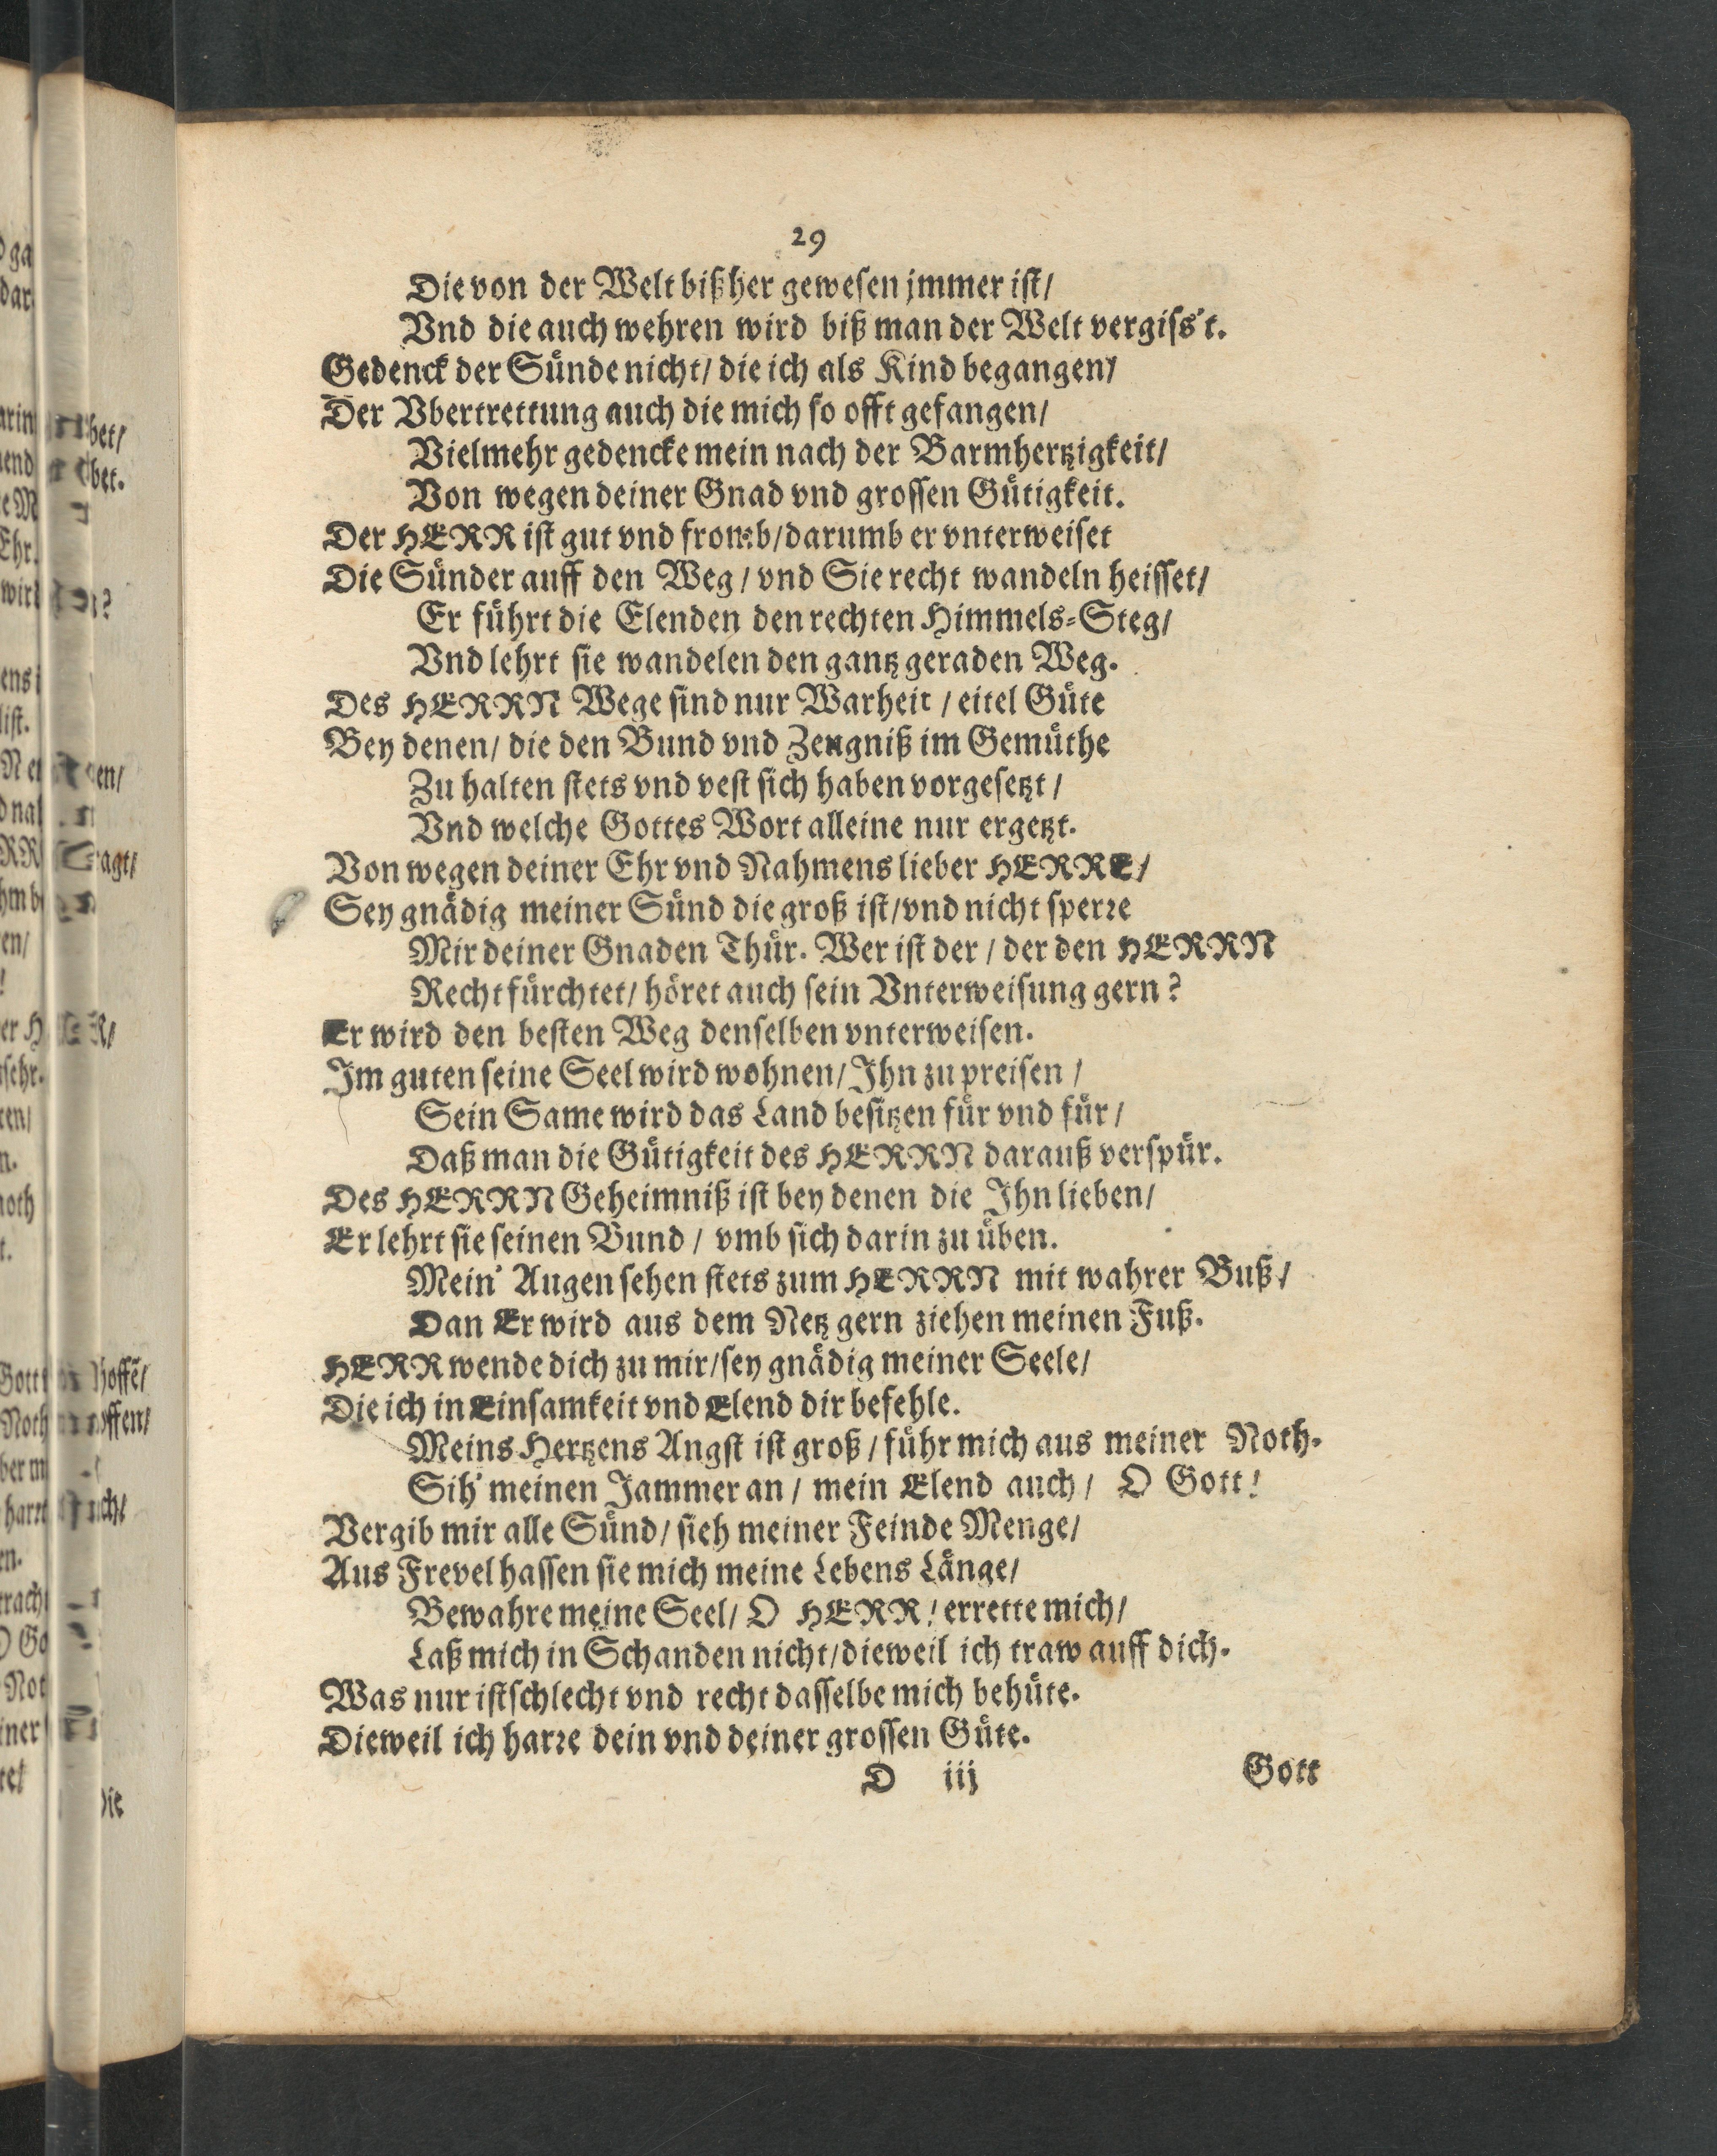 29
Die von der Welt bißher gewesen jmmer ist/
Vnd die auch wehren wird biß man der Welt vergiss't.
Gedenck der Sünde nicht/ die ich als Kind begangen/
Der Vbertrettung auch die mich so offt gefangen/
Vielmehr gedencke mein nach der Barmhertzigkeit/
Von wegen deiner Gnad vnd grossen Gütigkeit.
Der HERR ist gut vnd fromb/darumb er vnterweiset
Die Sünder auff den Weg/ vnd Sie recht wandeln heisset/
Er führt die Elenden den rechten Himmels-Steg/
Vnd lehrt sie wandelen den gantz geraden Weg.
Des HERRN Wege sind nur Warheit / eitel Güte
Bey denen/ die den Bund vnd Zeugniß im Gemüthe
Zu halten stets vnd vest sich haben vorgesetzt /
Vnd welche Gottes Wort alleine nur ergetzt.
Von wegen deiner Ehr vnd Nahmens lieber HERRE/
Sey gnädig meiner Sünd die groß ist/vnd nicht sperre
Mir deiner Gnaden Thür. Wer ist der / der den HERRN
Recht fürchtet/ höret auch sein Vnterweisung gern?
Er wird den besten Weg denselben vnterweisen.
Im guten seine Seel wird wohnen/ Ihn zu preisen /
Sein Same wird das Land besitzen für vnd für /
Daß man die Gütigkeit des HERRN darauß verspür.
Des HERRN Geheimniß ist bey denen die Ihn lieben/
Er lehrt sie seinen Bund / vmb sich darin zu üben.
Mein' Augen sehen stets zum HERRN mit wahrer Buß/
Dan Er wird aus dem Netz gern ziehen meinen Fuß.
HERR wende dich zu mir/sey gnädig meiner Seele/
Die ich in Einsamkeit vnd Elend dir befehle.
Meins Hertzens Angst ist groß / führ mich aus meiner Noth.
Sih' meinen Jammer an / mein Elend auch / O Gott!
Vergib mir alle Sünd/ sieh meiner Feinde Menge/
Aus Frevel hassen sie mich meine Lebens Länge/
Bewahre meine Seel/ O HERR! errette mich/
Laß mich in Schanden nicht/dieweil ich traw auff dich.
Was nur ist schlecht vnd recht dasselbe mich behüte.
Dieweil ich harre dein vnd deiner grossen Güte.
D iij Gott